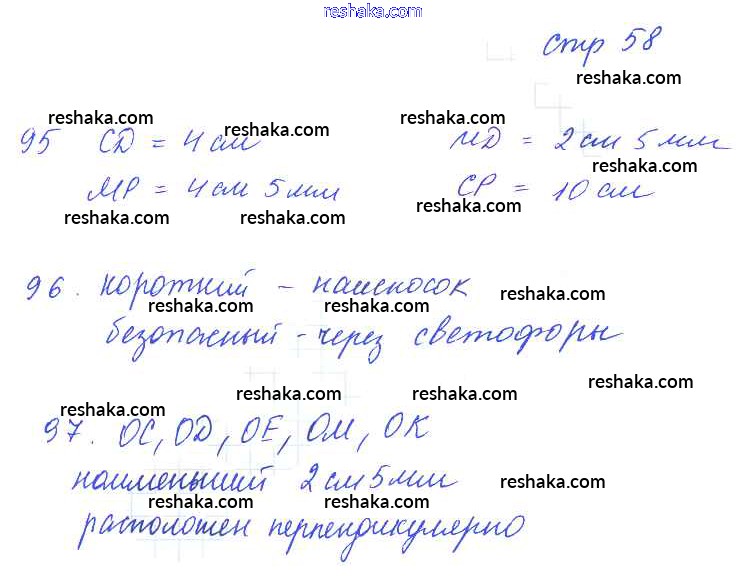 reshaka.com
стр 58
reshaka.com
reshaka.com reshaka.com
95 CD = 4 см MD = 2 см 5 мм
reshaka.com reshaka.com
MP = 4 см 5 мм CP = 10 см
reshaka.com reshaka.com reshaka.com
96. короткий - наискосок
reshaka.com reshaka.com reshaka.com
безопасный - через светофоры
reshaka.com reshaka.com reshaka.com
reshaka.com
97. OC, OD, OE, OM, OK
наименьший 2 см 5 мм
reshaka.com reshaka.com reshaka.com
расположен перпендикулярно